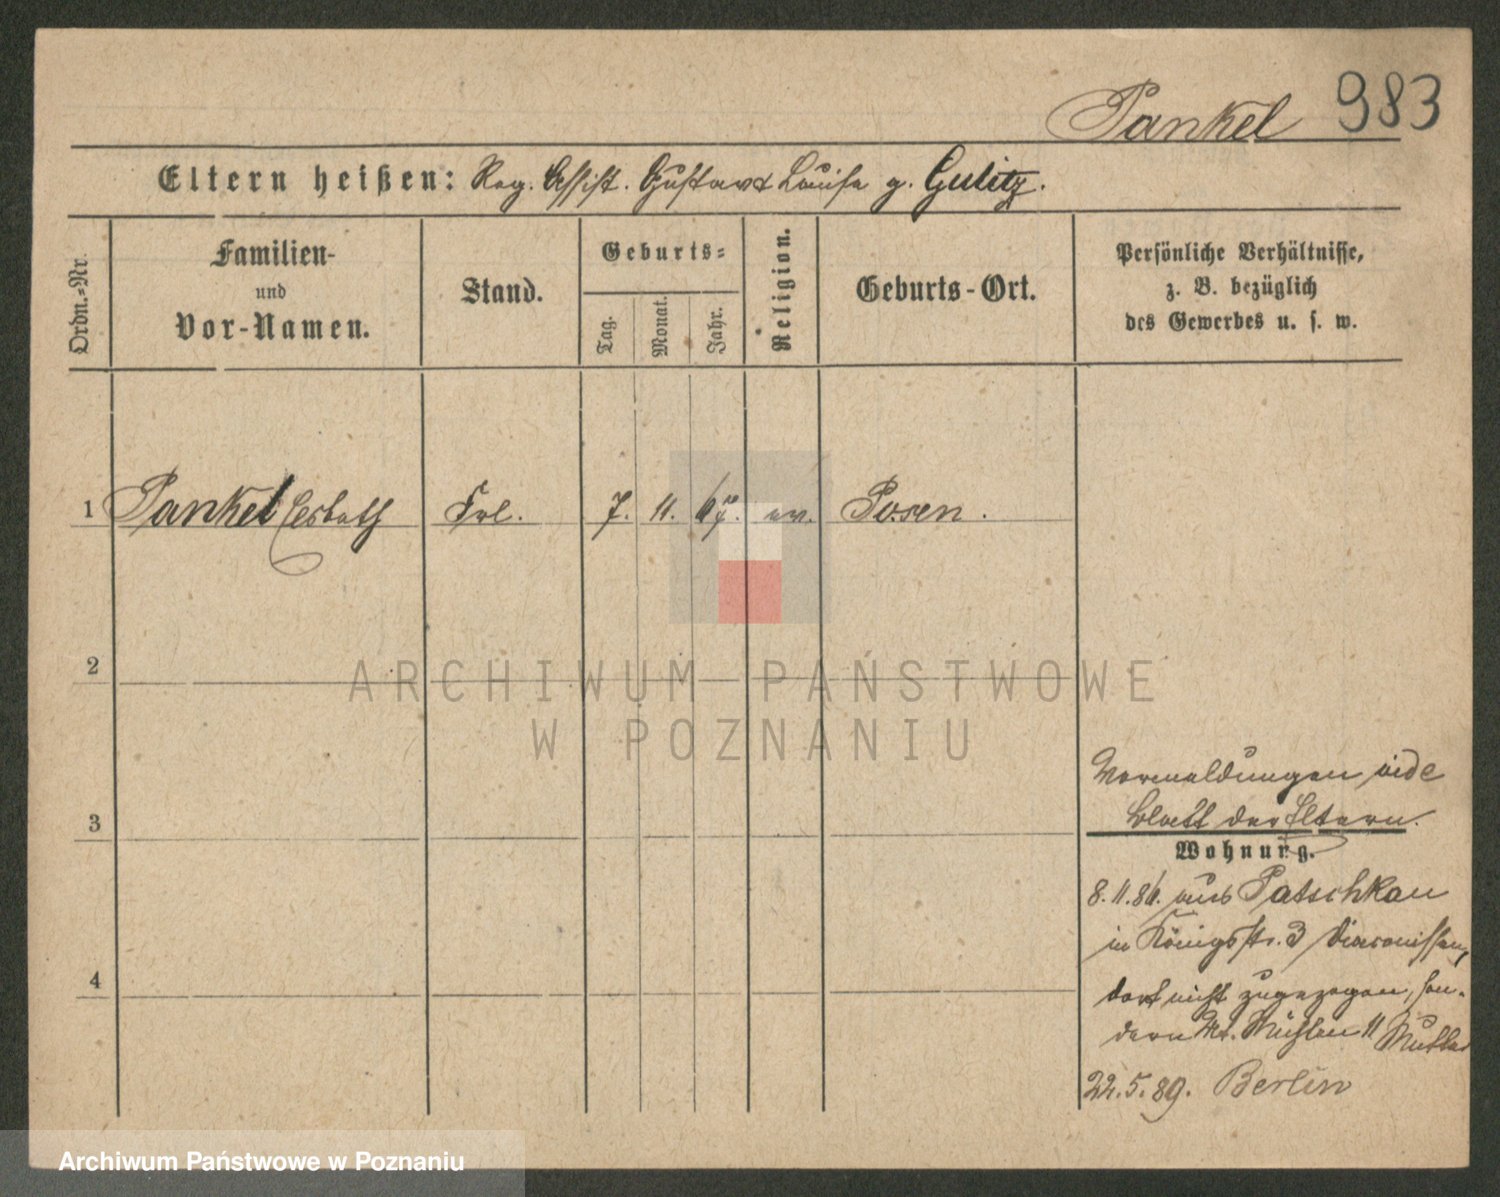 Pankel 983
Eltern heißen: Reg. Assist. Gustav & Louise g. Gulitz.
Ordn.-Nr.
Familien-
und
Vor-Namen.
Stand.
Geburts-
Tag.
Monat.
Jahr.
Religion.
Geburts-Ort.
Persönliche Verhältnisse,
z. B. bezüglich
des Gewerbes u. s. w.
1 Pankel Frl. 7. 11. ev. Posen.
2
3
4
Vormeldungen vide
Blatt der Eltern.
Wohnung.
8.11.86. aus Patschkau
in Königsstr. 3 Diaconissen,
dort nicht zugezogen, son-
dern Mühlen 11 Mutter
22.5.89. Berlin
ARCHIWUM PAŃSTWOWE
W POZNANIU
Archiwum Państwowe w Poznaniu